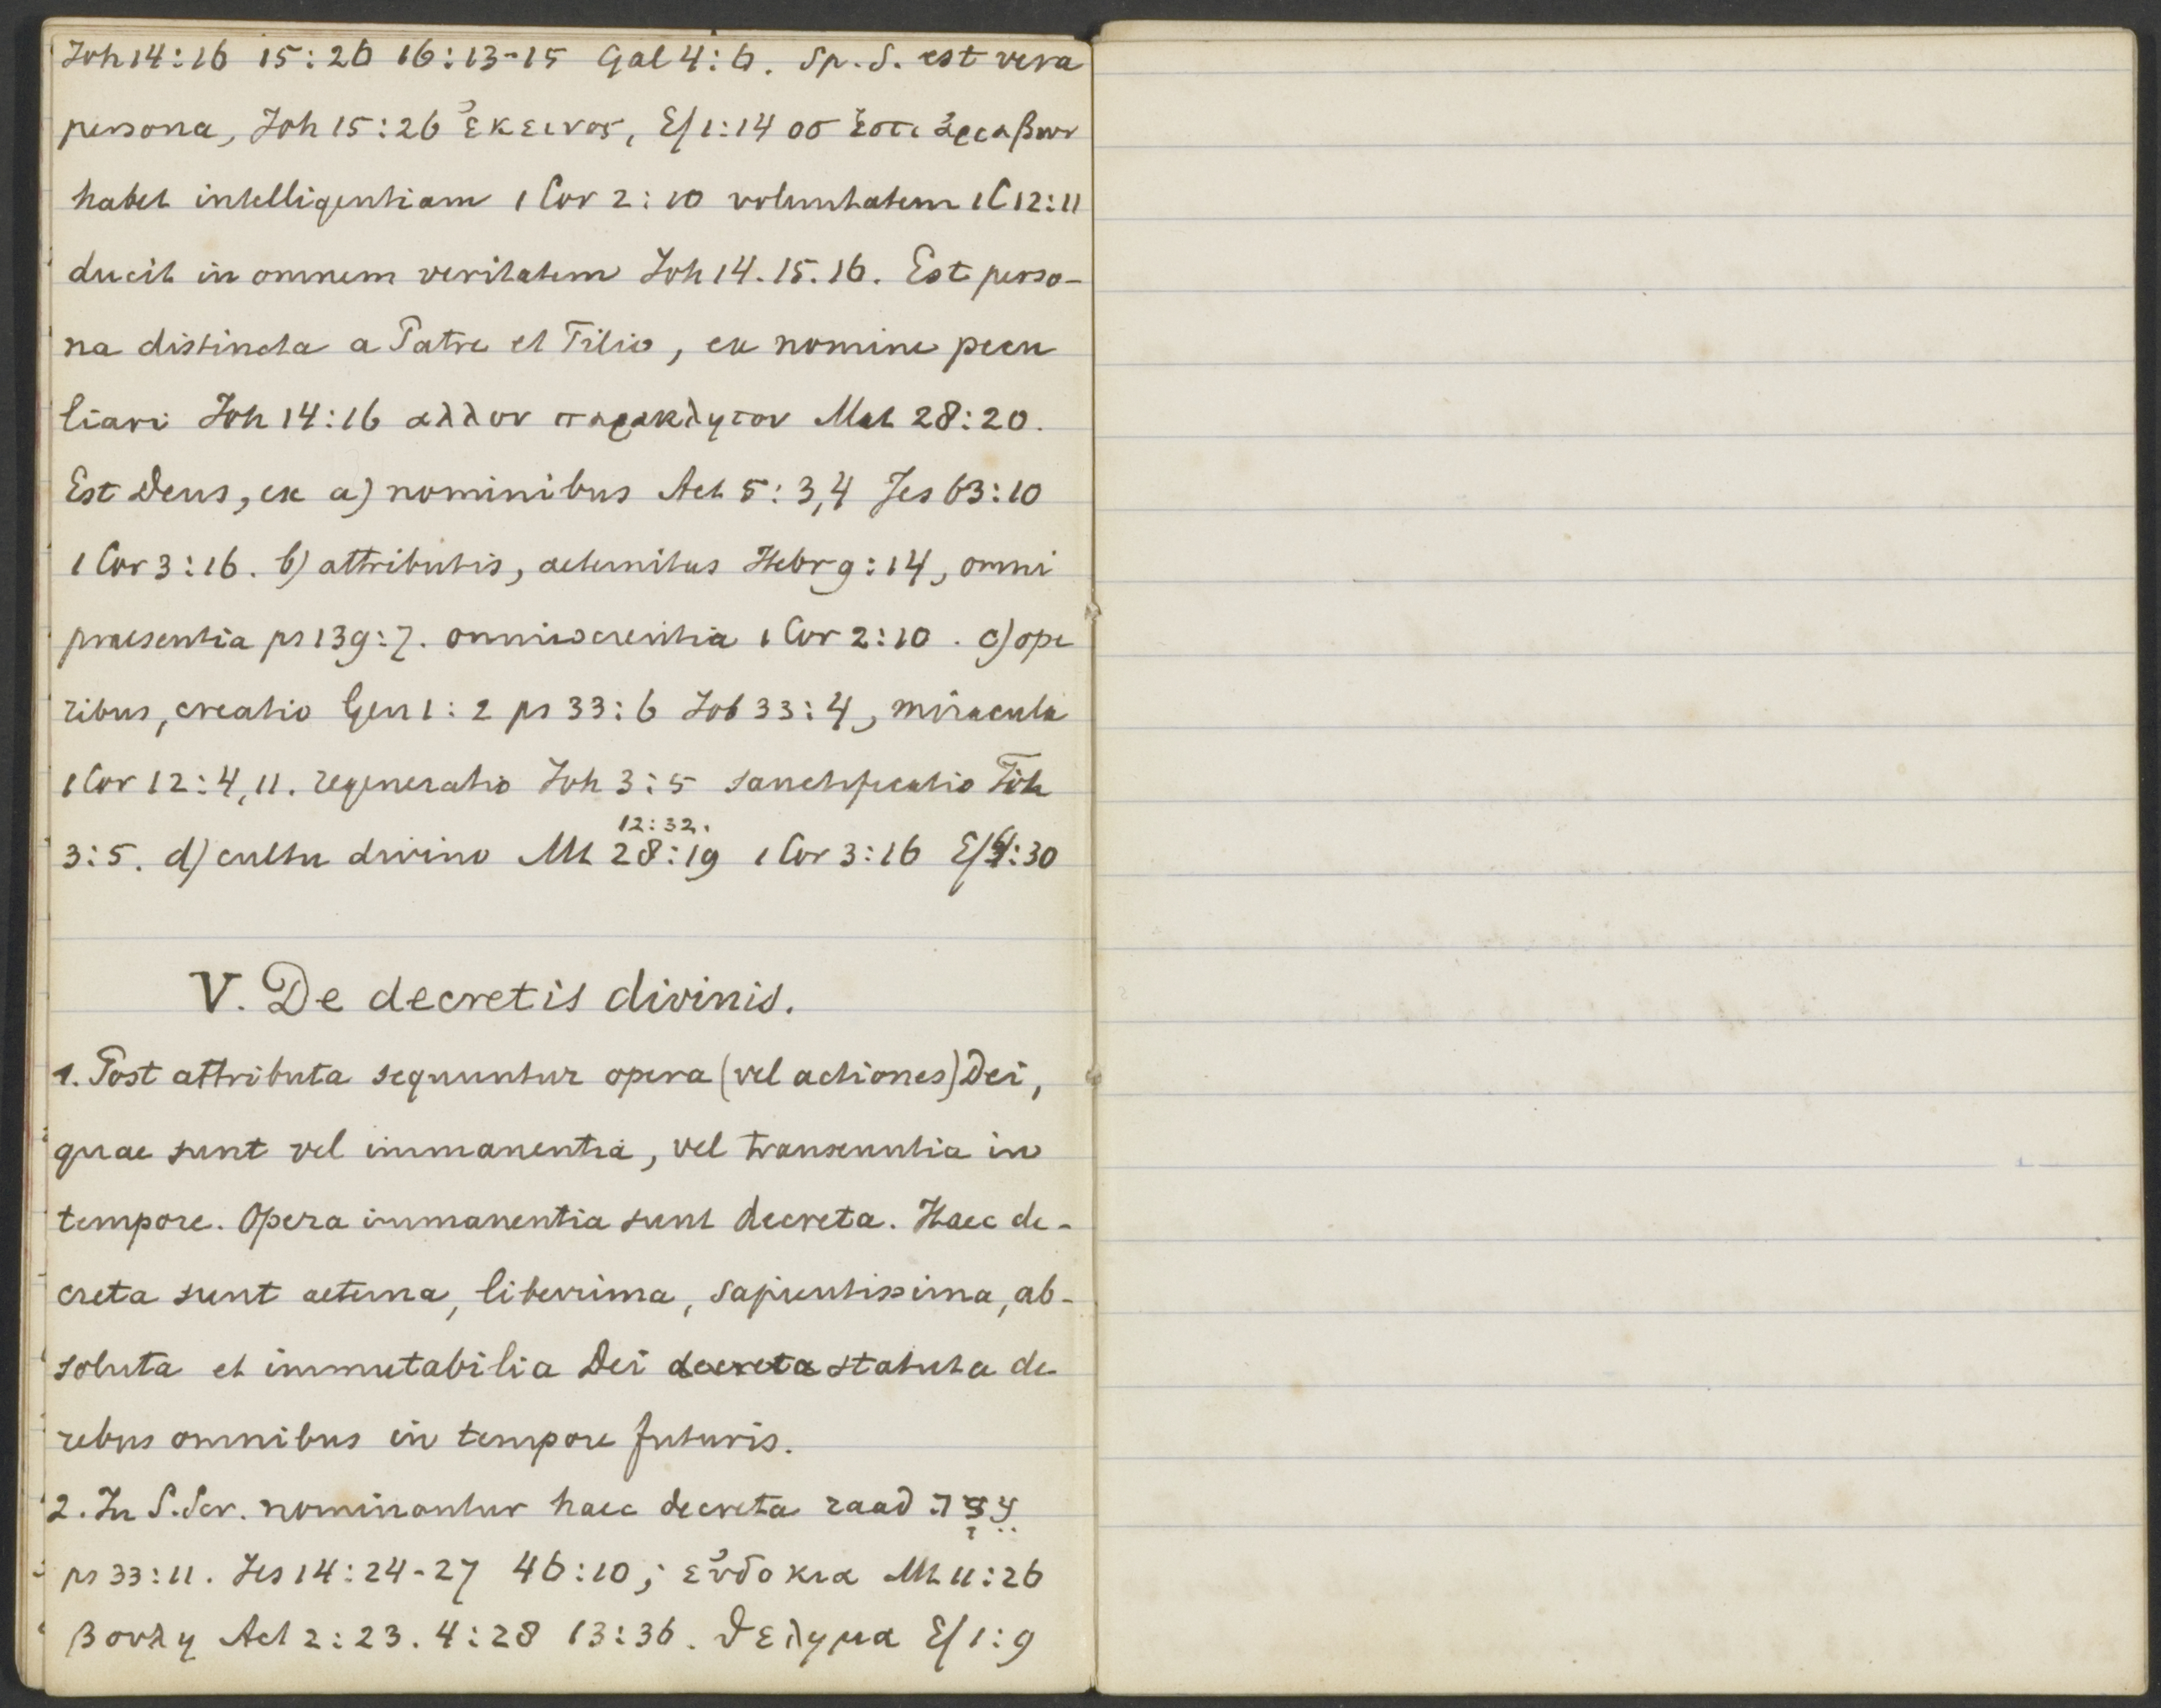 Joh 14:16 15:26 16:13-15 Gal 4:6. Sp. S. est vera
persona, Joh 15:26 ἐκεινος, Ef 1:14 ὁς ἐστι ἀρραβων
habet intelligentiam 1 Cor 2:10 voluntatem 1 C 12:11
ducit in omnem veritatem Joh 14. 15. 16. Est perso-
na distincta a Patre et Filio, ex nomine pecu
liari Joh 14:16 αλλον παρακλητον Mat 28:20.
Est Deus, ex a) nominibus Act 5:3,4 Jes 63:10
1 Cor 3:16. b) attributis, aeternitas Hebr 9:14, omni
praesentia ps 139:7. omniscientia 1 Cor 2:10. c) ope
ribus, creatio Gen 1:2 ps 33:6 Job 33:4, miracula
1 Cor 12:4,11. regeneratio Joh 3:5 sanctificatio Tit
12:32.
3:5. d) cultu divino Mt 28:19 1 Cor 3:16 Ef 4:30
V. De decretis divinis.
1. Post attributa sequuntur opera (vel actiones) Dei,
quae sunt vel immanentia, vel transeuntia in
tempore. Opera immanentia sunt decreta. Haec de-
creta sunt aeterna, liberrima, sapientissima, ab-
soluta et immutabilia Dei decreta statuta de
rebus omnibus in tempore futuris.
2. In S. Scr. nominantur haec decreta raad
ps 33:11. Jes 14:24-27 46:10; εὐδοκια Mt 11:26
βουλη Act 2:23. 4:28 13:36. θελημα Ef 1:9